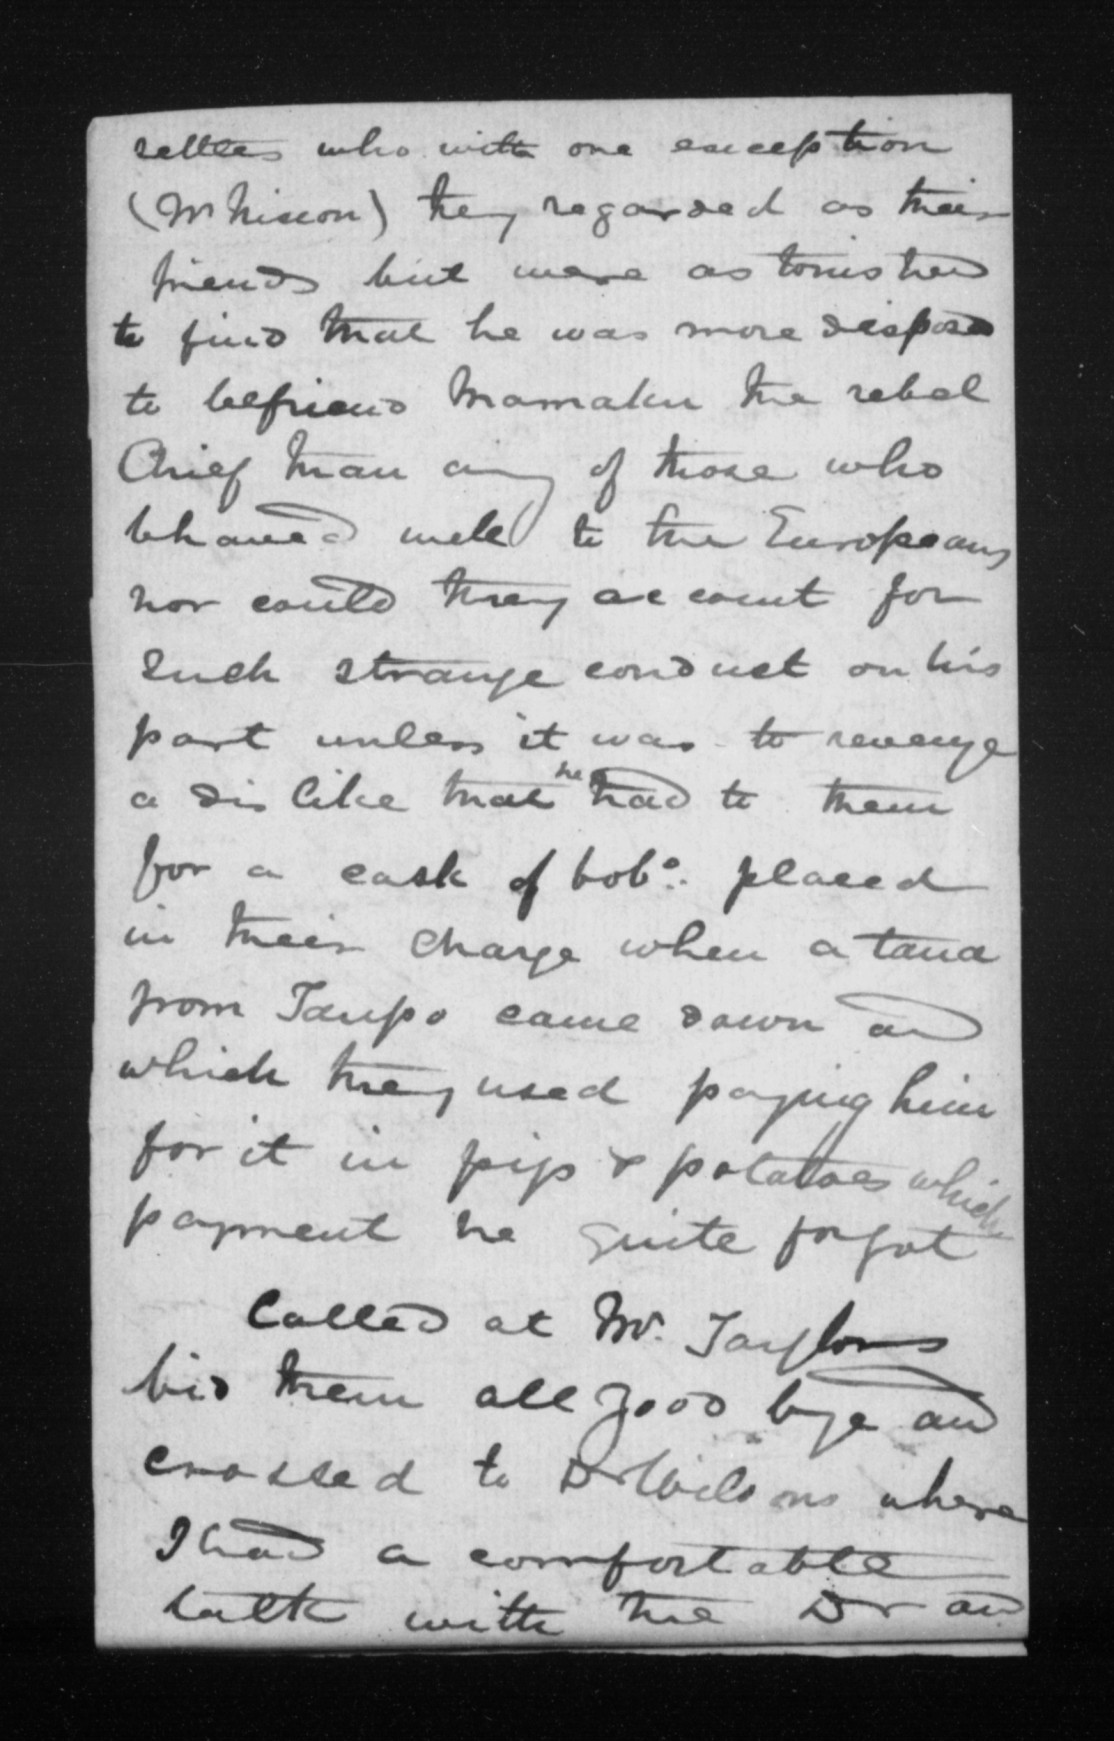 settlers who with one exception
(Mr Nixon) they regarded as their
friends but were astonished
to find that he was more disposed
to befriend Mamaku the rebel
Chief than any of those who
behaved well to the Europeans
nor could they account for
such strange conduct on his
part unless it was to revenge
a dislike that he had to them
for a cask of tobo. placed
in their charge when a taua
from Taupo came down and
which they used paying him
for it in pigs & potatoes which
payment he quite forgot
Called at Mr. Taylors
bid them all good bye and
crossed to Dr Wilsons where
I had a comfortable
talk with the Dr and